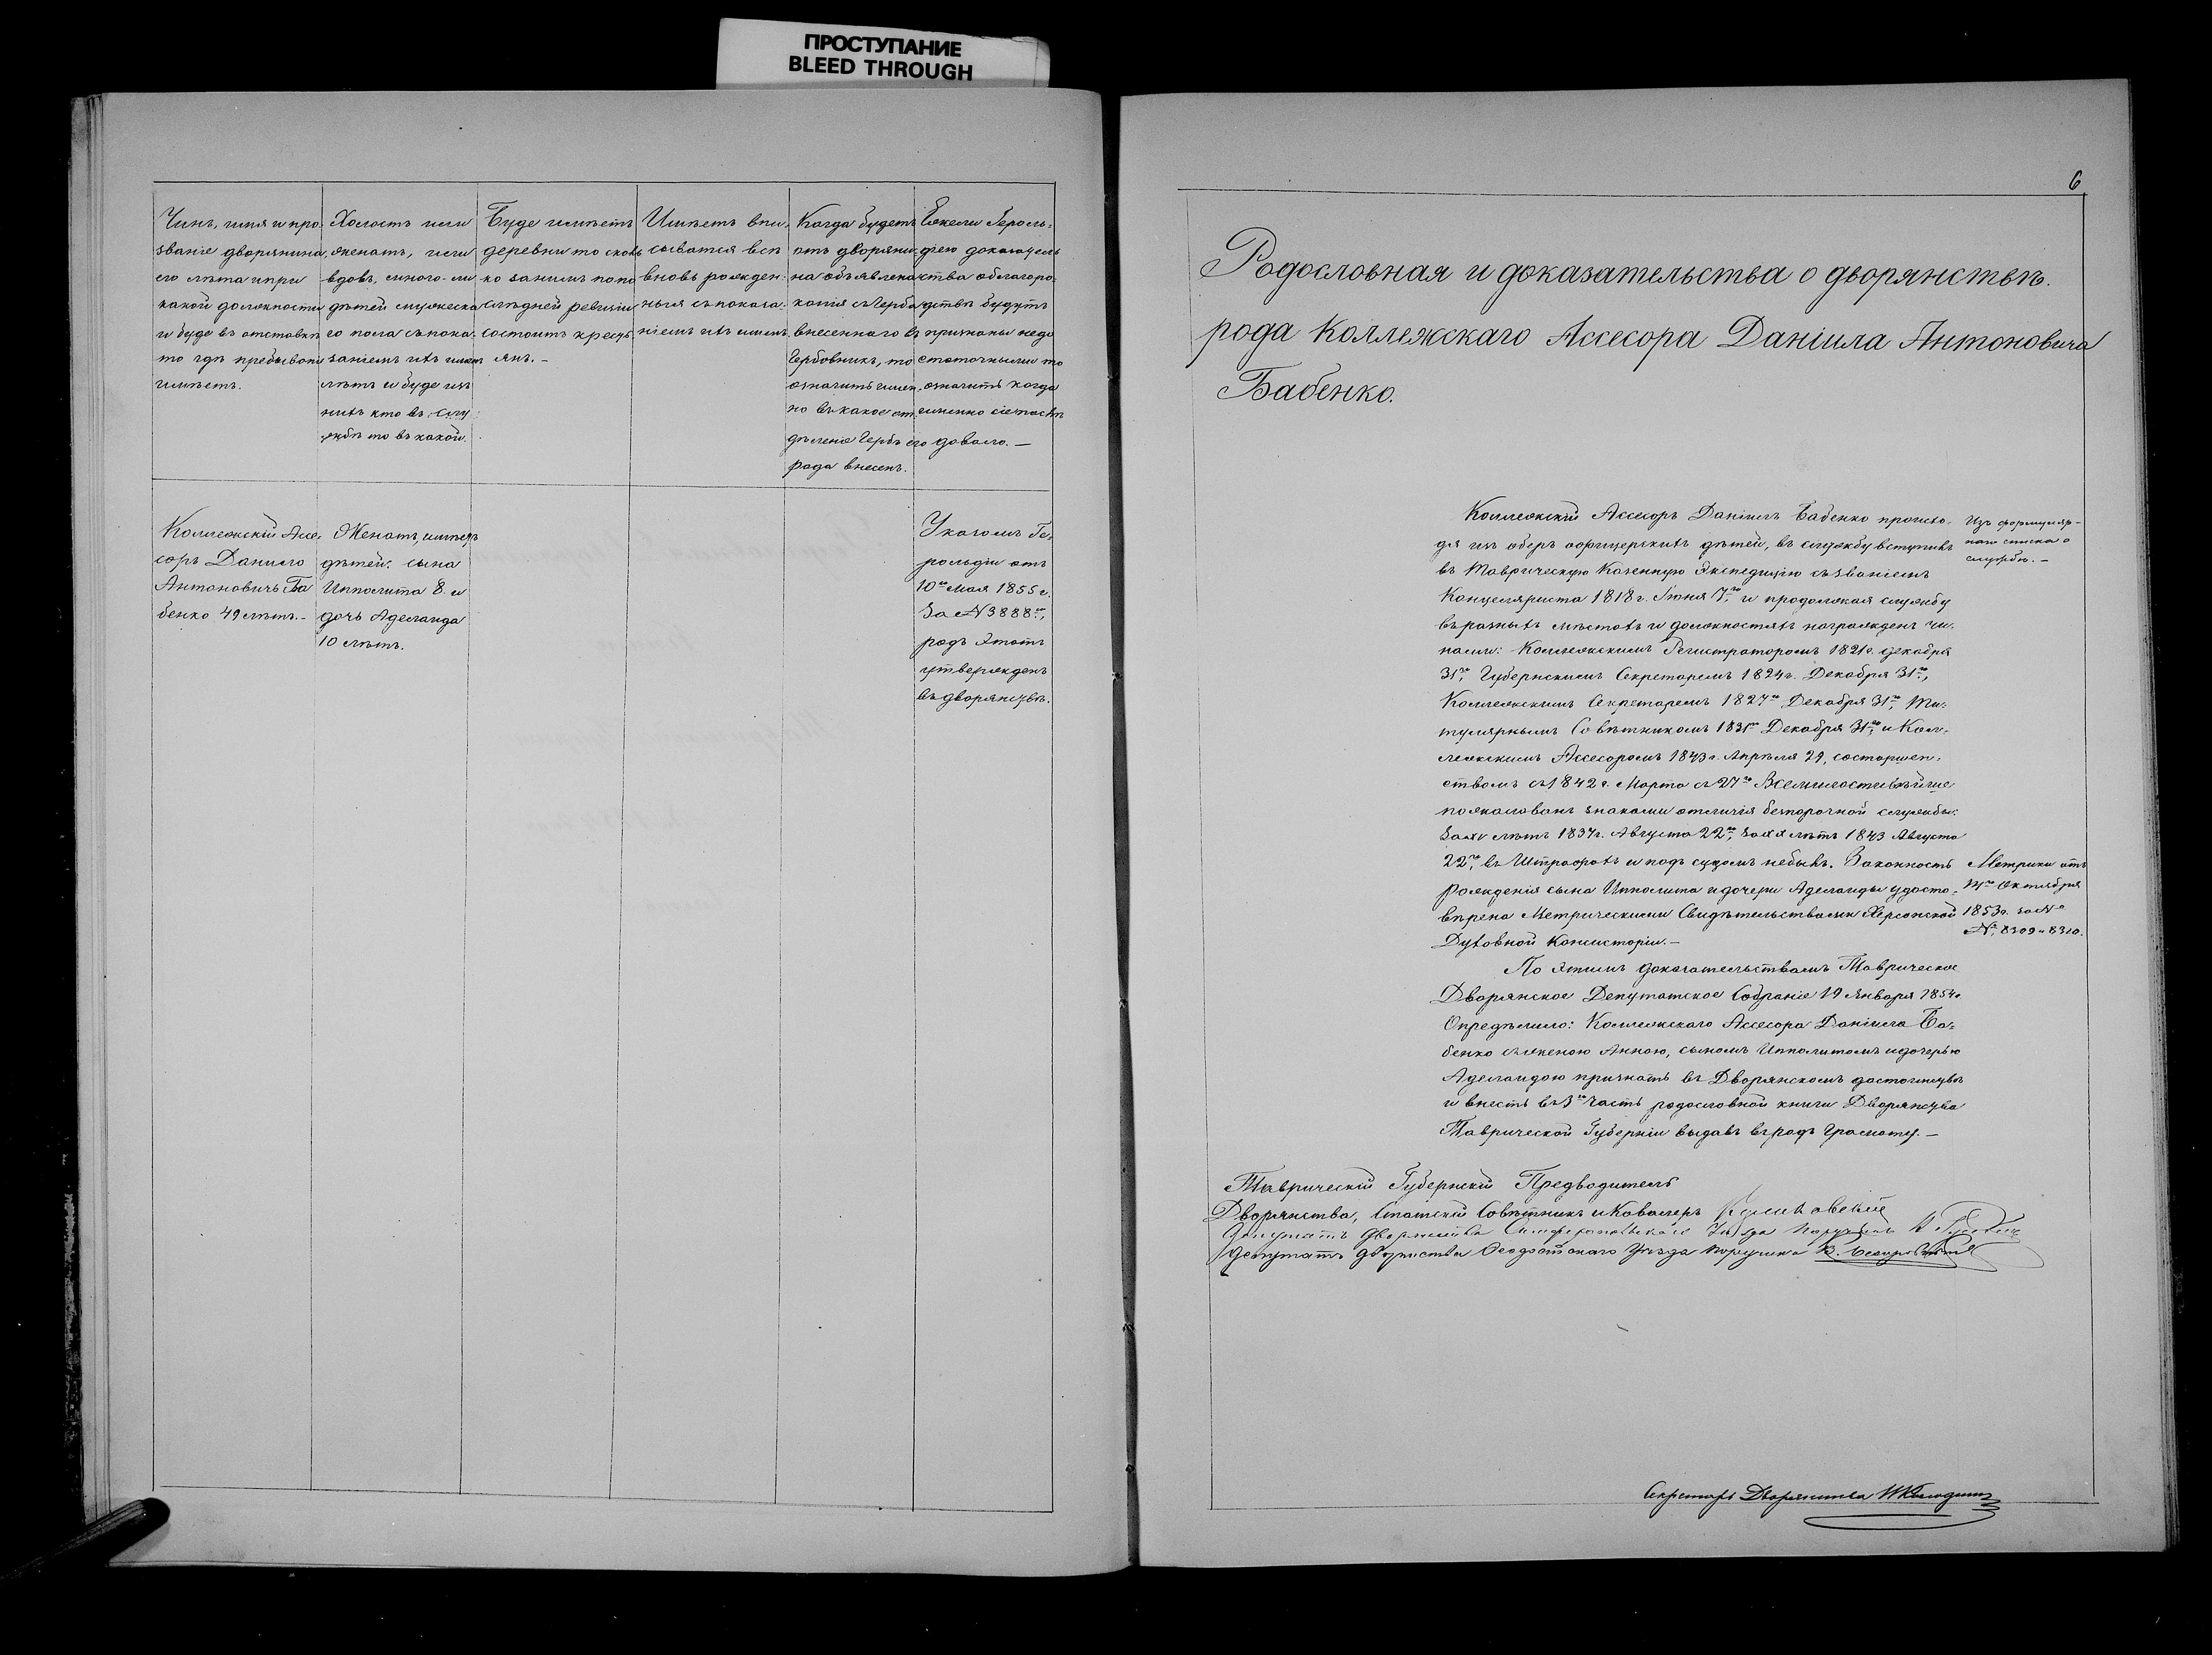 ПРОСТУПАНИЕ
BLEED THROUGH
Чинъ, имя и про-
званіе дворянина,
его лѣта и при
какой должности
и буде въ отставкѣ
то гдѣ пребываніе
имѣетъ.
Холостъ или
женатъ, или
вдовъ, много-ли
дѣтей мужеска
го пола съ пока-
заніемъ ихъ имен
лѣтъ и буде изъ
нихъ кто въ слу
жбѣ то въ какой.
Буде имѣетъ
деревни то сколь
ко за нимъ по по
слѣдней ревизіи
состоитъ кресть
янъ. –
Имѣетъ впи-
сыватся всѣ
вновь рожден-
ныя съ показа-
ніемъ ихъ именъ.
Когда будетъ
отъ дворяни-
на объявлена
копія съ Герба
внесеннаго въ
Гербовникъ, то
означить имен-
но въ какое от-
дѣленіе Гербъ его
рода внесенъ.
Ежели Героль-
діею доказатель
ства облагоро-
дствѣ будутъ
признаны недо
статочными то
означить когда
именно сіе послѣ
довало. –
Коллежскій Ассе-
соръ Данило
Антоновичъ Ба
бенко 49 лѣтъ. –
Женатъ, имѣетъ
дѣтей: сына
Ипполита 8. и
дочь Аделаида
10 лѣтъ.
Указомъ Ге-
рольдіи отъ
10го Мая 1855 г.
За № 3888мъ,
родъ этотъ
утвержденъ
въ дворянствѣ.
6
Родословная и доказательства о дворянствѣ.
рода Коллежскаго Ассесора Даніила Антоновича
Бабенко.
Коллежскій Ассесоръ Даніилъ Бабенко происхо-
дя изъ оберъ офицерскихъ дѣтей, въ службу вступилъ
въ Таврическую Казенную Экспедицію съ званіемъ
Канцеляриста 1818 г. Іюня 7го и продолжая службу
въ разныхъ мѣстахъ и должностяхъ награжденъ чи-
нами: Коллежскимъ Регистраторомъ 1821 г. декабря
31го, Губернскимъ Секретаремъ 1824 г. Декабря 31го,
Коллежскимъ Секретаремъ 1827го Декабря 31го, Ти-
тулярнымъ Совѣтникомъ 1831го Декабря 31го, и Кол-
лежскимъ Ассесоромъ 1843 г. Апрѣля 29, со старшин-
ствомъ съ 1842 г. Марта съ 27го Всемилостивѣйше
пожалованъ знаками отличія безпорочной службы:
За XV лѣтъ 1837 г. Августа 22го, за XX лѣтъ 1843 Августа
22го, въ Штрафахъ и подъ судомъ не былъ. Законность
рожденія сына Ипполита и дочери Аделаиды удосто-
вѣрена Метрическими Свидѣтельствами Херсонской
Духовной Консисторіи. –
Изъ формуляр-
наго списка о
службѣ. –
Метрики отъ
Октября
1853 г. за №
№ 8309 и 8310.
По этимъ доказательствамъ Таврическое
Дворянское Депутатское Собраніе 19 Января 1854 г.
Опредѣлило: Коллежскаго Ассесора Даніила Ба-
бенко съ женою Анною, сыномъ Ипполитомъ и дочерью
Аделаидою признать въ Дворянскомъ достоинствѣ
и внесть въ 3ю часть родословной книги Дворянства
Таврической Губерніи выдавъ въ родъ Грамоту. –
Таврическій Губернскій Предводитель
Дворянства, Статскій Совѣтникъ и Кавалеръ
Депутатъ Дворянства Симферопольскаго Уѣзда Поручикъ
Депутатъ дворянства Ѳеодосійскаго Уѣзда поручикъ
Секретарь Дворянства